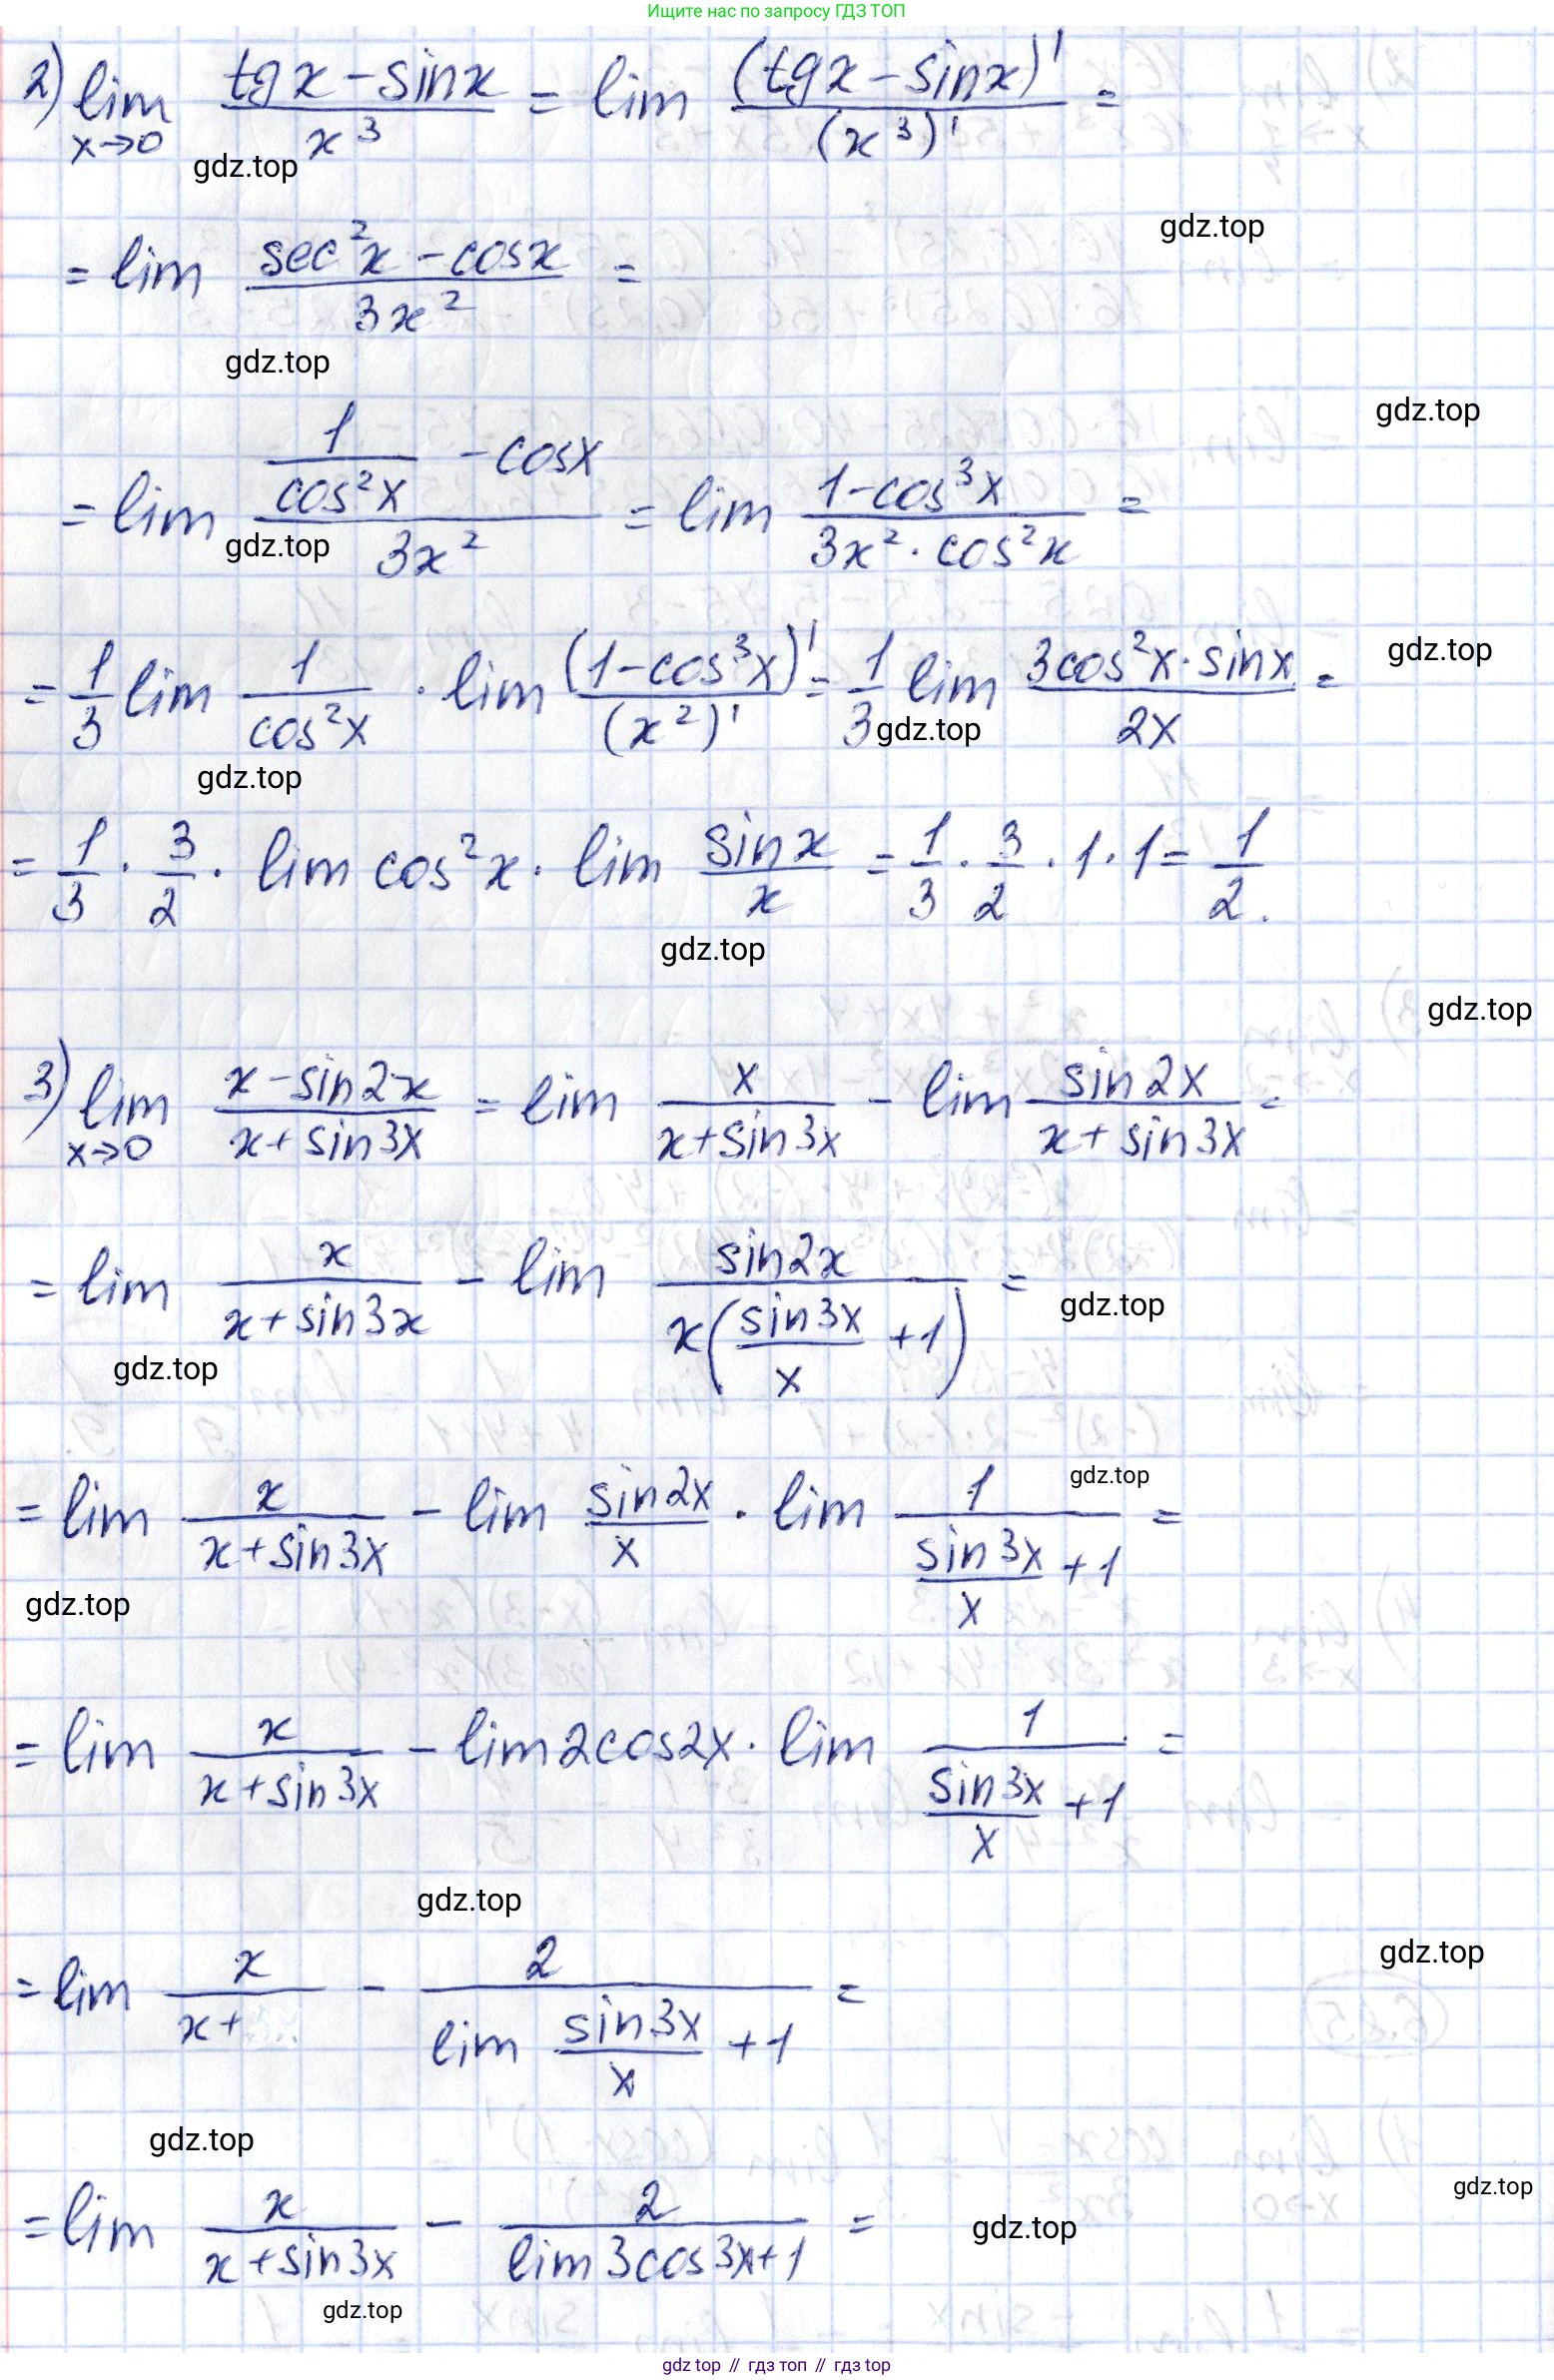 Ищите нас по запросу ГДЗ ТОП
2) lim x→0 (tgx − sinx)/x³ = lim (tgx − sinx)'/(x³)' =
gdz.top
gdz.top
= lim (sec²x − cosx)/3x² =
gdz.top
gdz.top
= lim (1/cos²x − cosx)/3x² = lim (1−cos³x)/(3x²·cos²x) =
gdz.top
= 1/3 lim 1/cos²x · lim (1−cos³x)'/(x²)' = 1/3 lim (3cos²x·sinx)/2x =
gdz.top
gdz.top
gdz.top
= 1/3 · 3/2 · lim cos²x · lim sinx/x = 1/3 · 3/2 · 1 · 1 = 1/2.
gdz.top
gdz.top
3) lim x→0 (x−sin2x)/(x+sin3x) = lim x/(x+sin3x) − lim sin2x/(x+sin3x) =
= lim x/(x+sin3x) − lim sin2x/(x(sin3x/x +1)) =
gdz.top
gdz.top
= lim x/(x+sin3x) − lim sin2x/x · lim 1/(sin3x/x +1) =
gdz.top
gdz.top
= lim x/(x+sin3x) − lim 2cos2x · lim 1/(sin3x/x +1) =
gdz.top
gdz.top
= lim x/(x+ − 2/(lim sin3x/x +1) =
gdz.top
gdz.top
= lim x/(x+sin3x) − 2/(lim 3cos3x+1) =
gdz.top
gdz.top
gdz top // гдз топ // гдз top